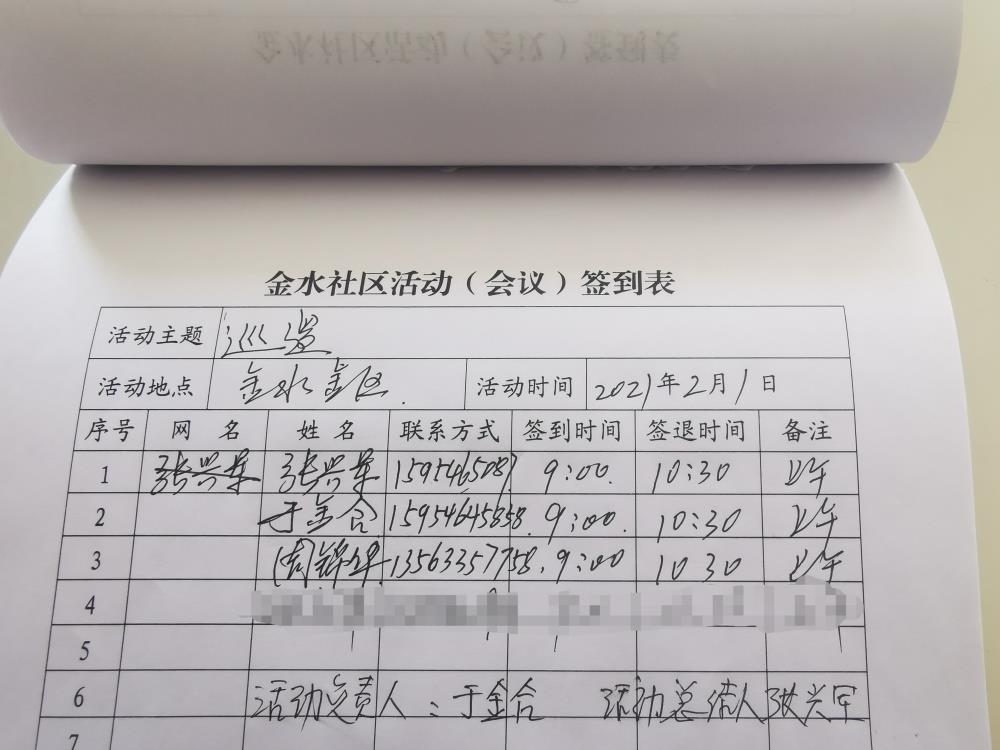 金水社区活动（会议）签到表
金水社区活动（会议）签到表
活动主题 巡逻
活动地点 金水社区. 活动时间 2021年2月1日
序号 网 名 姓 名 联系方式 签到时间 签退时间 备注
1 张兴军 张兴军 9:00. 10:30 上午
2 于金合 15954645858. 9:00. 10:30 上午
3 周锦华 13563357758. 9:00 10 30 上午
4
5
6 活动负责人：于金合 活动总结人张兴军
7